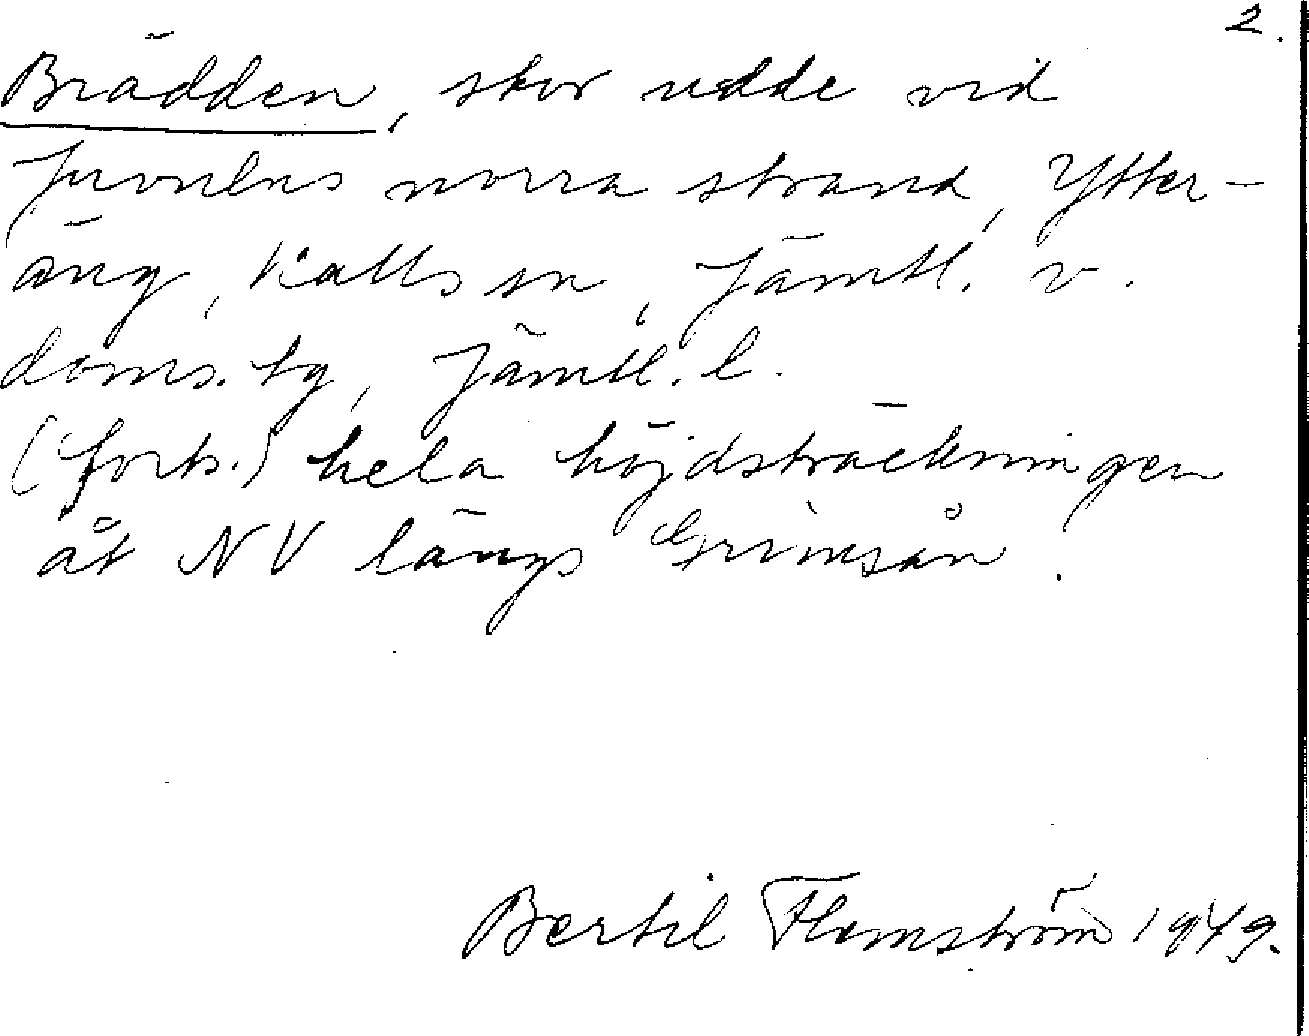 2.
Brädden, stor udde vid
Juvulns norra strand, Ytter-
äng, Kalls sn, Jämtl. v.
doms. tg, Jämtl. l.
(forts.) hela höjdsträckningen
åt NV längs Grimsån.
Bertil Flemström 1949.